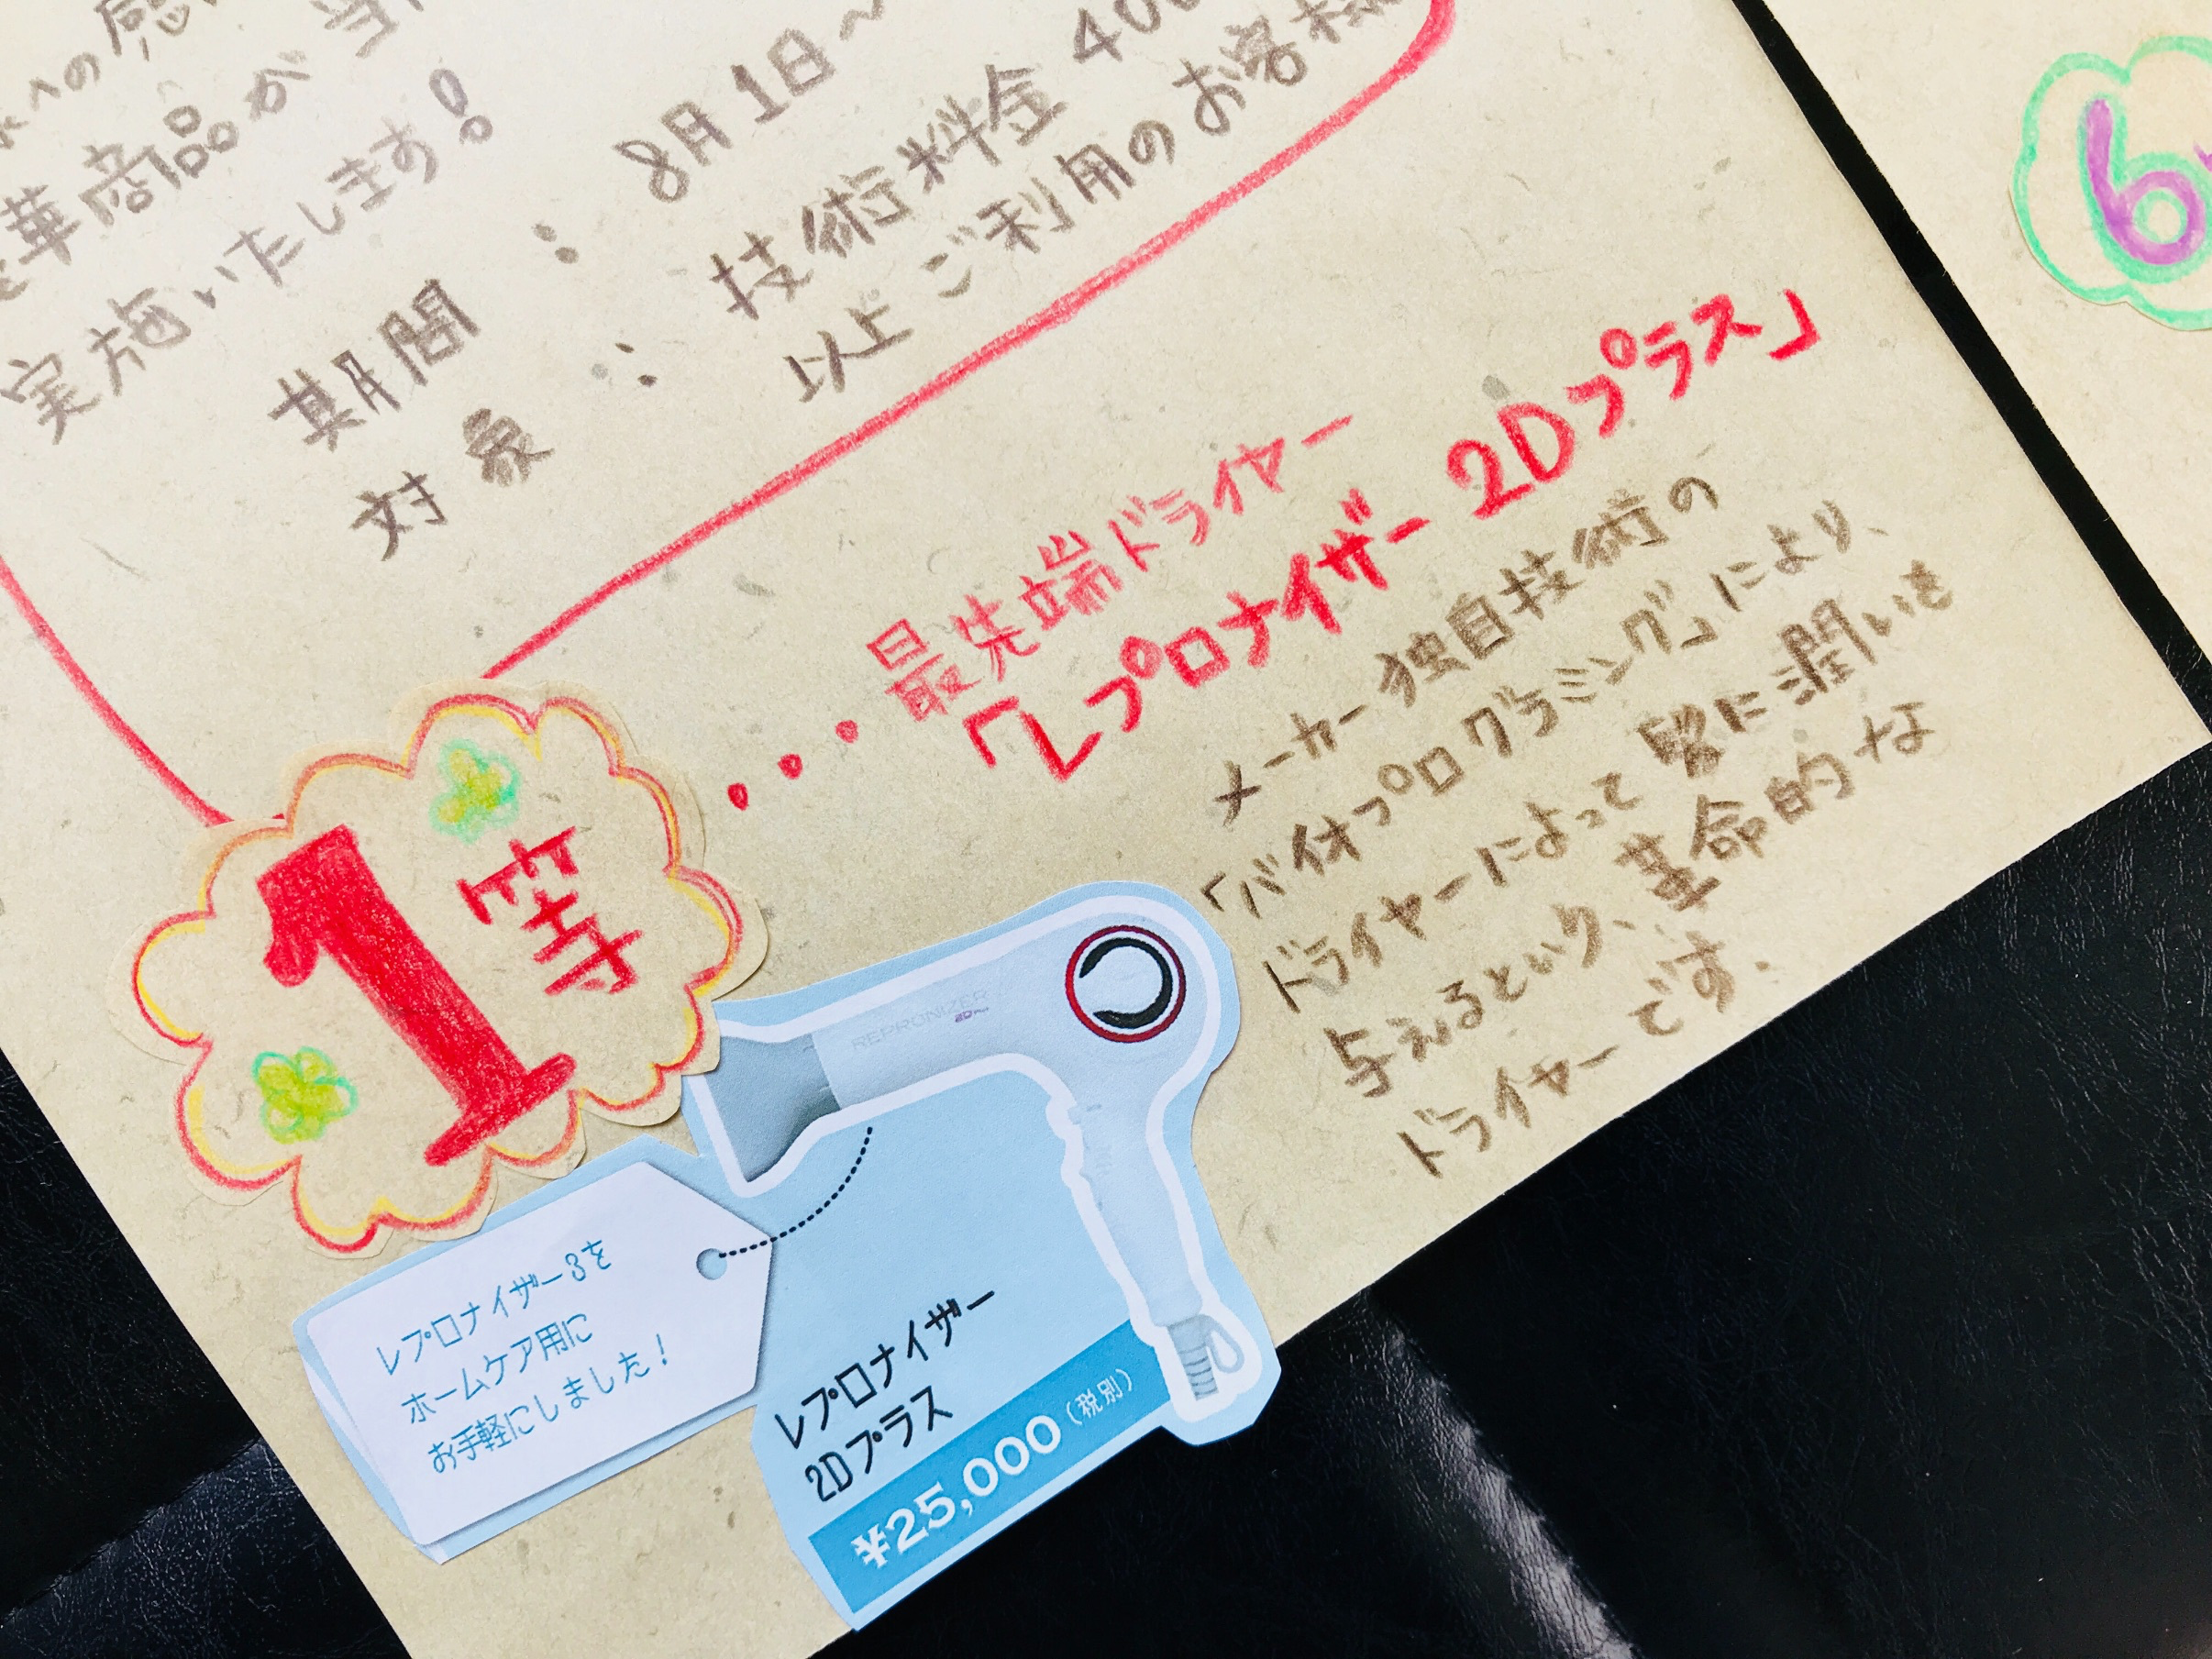 への感
華商品が当
実施いたします!
期間 : 8月1日〜
対象 : 技術料金 400
以上ご利用のお客様
6
1等
... 最先端ドライヤー
「レプロナイザー 2Dプラス」
メーカー独自技術の
「バイオプログラミング」により、
ドライヤーによって髪に潤いを
与えるという、革命的な
ドライヤーです.
REPRONIZER
2D Plus
レプロナイザー3を
ホームケア用に
お手軽にしました!
レプロナイザー
2Dプラス
¥25,000(税別)